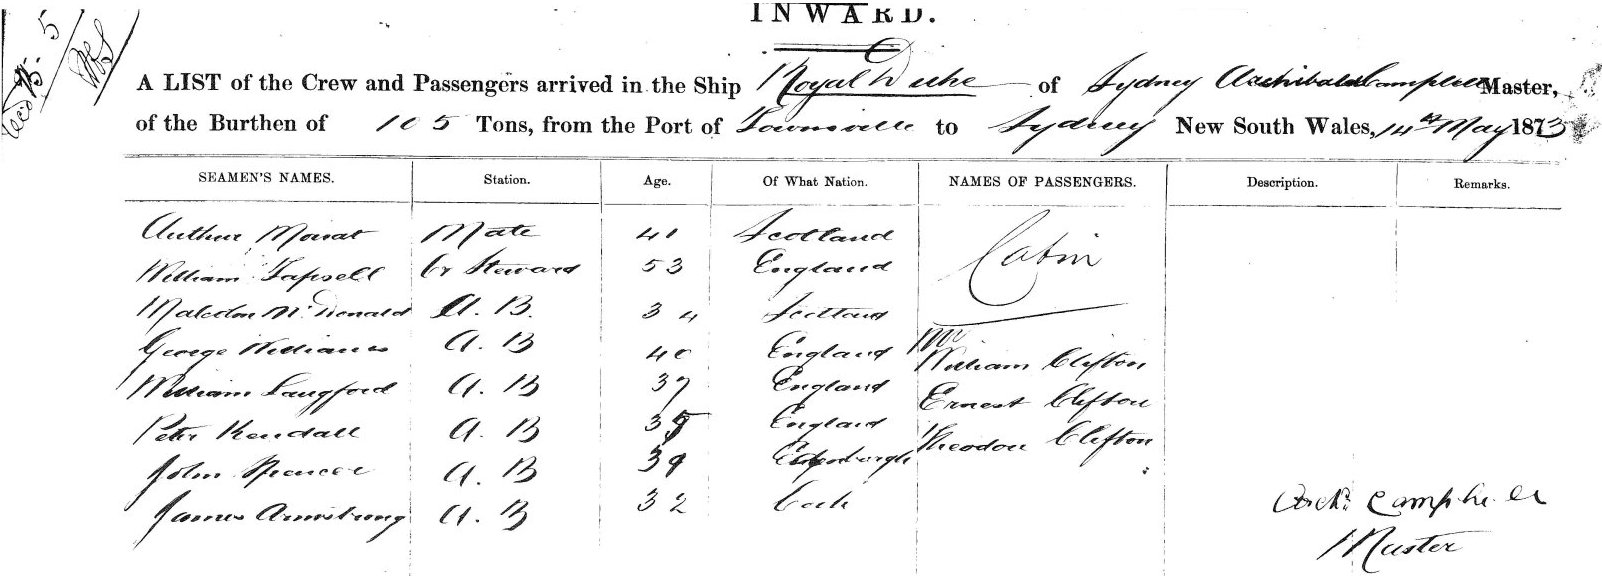 INWARD.
A LIST of the Crew and Passengers arrived in the Ship Royal Duke of Sydney Archibald Campbell Master,
of the Burthen of 105 Tons, from the Port of Townsville to Sydney New South Wales, 14th May 1873
SEAMEN'S NAMES. Station. Age. Of What Nation. NAMES OF PASSENGERS. Description. Remarks.
Arthur Mouat Mate 41 Scotland Cabin
William Tapsell Cr Steward 53 England
Malcolm McDonald A. B. 34 Scotland
George Williams A. B 40 England William Clifton
William Langford A. B 37 England Ernest Clifton
Peter Kendall A. B England Theodore Clifton
John Spencer A. B 39 Edenborgh
James Armstrong A. B 32 Cork Archd. Campbell
Master